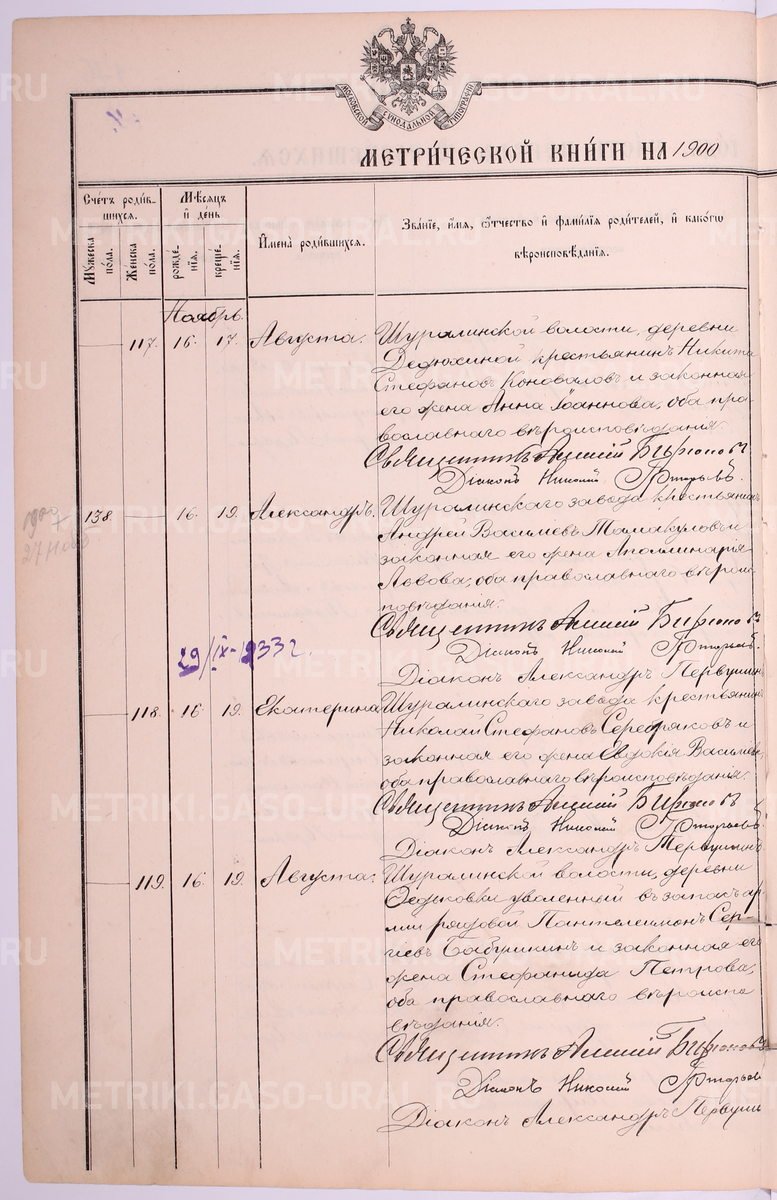 МОСКОВСКОЙ СѴНОДАЛЬНОЙ ТИПОГРАФІИ
МЕТРИ́ЧЕСКОЙ КНИ́ГИ НА 1900
Сче́тъ роди́в-
шихся.
Мѣ́сяцъ
и҆ де́нь
И҆мена̀ роди́вшихся.
Зва́нїе, и҆́мя, ѻ҆́тчество и҆ фамѝлїя роди́телей, и҆ какѡ́гѡ
вѣроисповѣ́данїя.
Мꙋ́жеска по́ла.
Же́нска по́ла.
рожде́-нїя.
креще́-нїя.
Ноябрь.
117. 16. 17. Августа. Шуралинской волости, деревни
Дедюхиной крестьянинъ Никита
Стефановъ Коновалов и законная
его жена Анна Іоаннова, оба пра-
вославнаго вѣроисповѣданія.
Священникъ Алексій Бирюковъ
Діаконъ Николай Григорьевъ.
138. 16. 19. Александръ. Шуралинскаго завода крестьянинъ
Андрей Васильевъ Тамакуловъ и
законная его жена Аполлинарія
Львова, оба православнаго вѣроис-
повѣданія.
Священникъ Алексій Бирюковъ
29/IX-1933 г.
Діаконъ Николай Григорьевъ.
Діаконъ Александръ Первушинъ
118. 16. 19. Екатерина Шуралинскаго завода крестьянинъ
Николай Стефановъ Серебряковъ и
законная его жена Евдокія Васильева,
оба православнаго вѣроисповѣданія.
Священникъ Алексій Бирюковъ
Діаконъ Николай Григорьевъ
Діаконъ Александръ Первушинъ
119. 16. 19. Августа. Шуралинской волости, деревни
Федьковки уволенный въ запасъ ар-
міи рядовой Пантелеимонъ Сер-
гіевъ Бабушкинъ и законная его
жена Стефанида Петрова,
оба православнаго вѣроиспо
вѣданія.
Священникъ Алексій Бирюковъ
Діаконъ Николай Григорьев
Діаконъ Александръ Первуши
METRIKI.GASO-URAL.RU